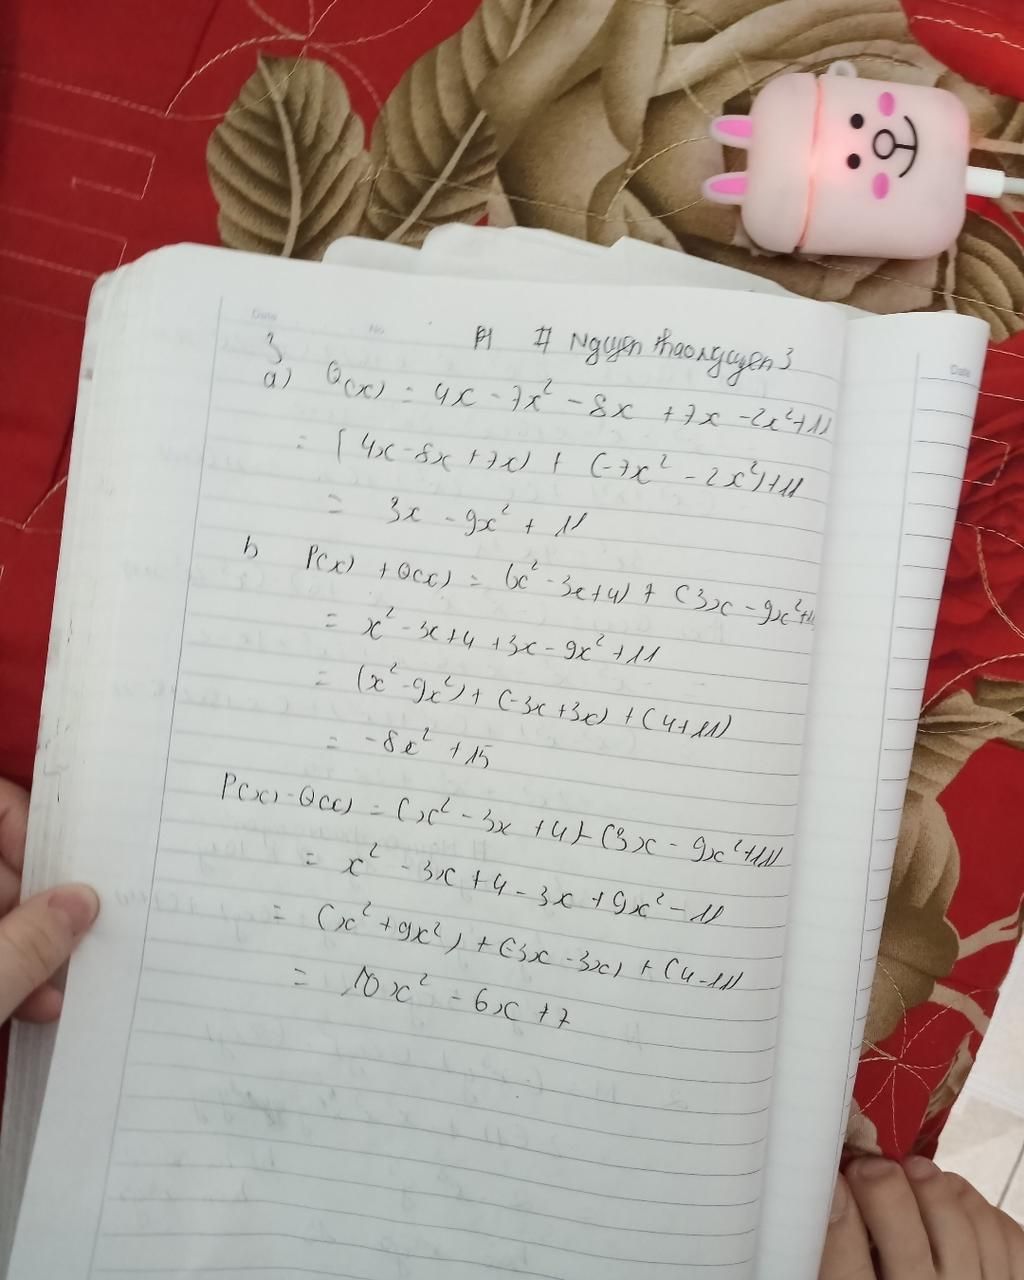 Date No
# Nguyen thaonguyen3
3
a) Q(x) = 4x - 7x² - 8x + 7x - 2x² + 11
= (4x - 8x + 7x) + (-7x² - 2x²) + 11
= 3x - 9x² + 11
b P(x) + Q(x) = (x² - 3x + 4) + (3x - 9x² + 11
= x² - 3x + 4 + 3x - 9x² + 11
= (x² - 9x²) + (-3x + 3x) + (4 + 11)
= -8x² + 15
P(x) - Q(x) = (x² - 3x + 4) - (3x - 9x² + 11)
= x² - 3x + 4 - 3x + 9x² - 11
= (x² + 9x²) + (-3x - 3x) + (4 - 11)
= 10x² - 6x + 7
Date